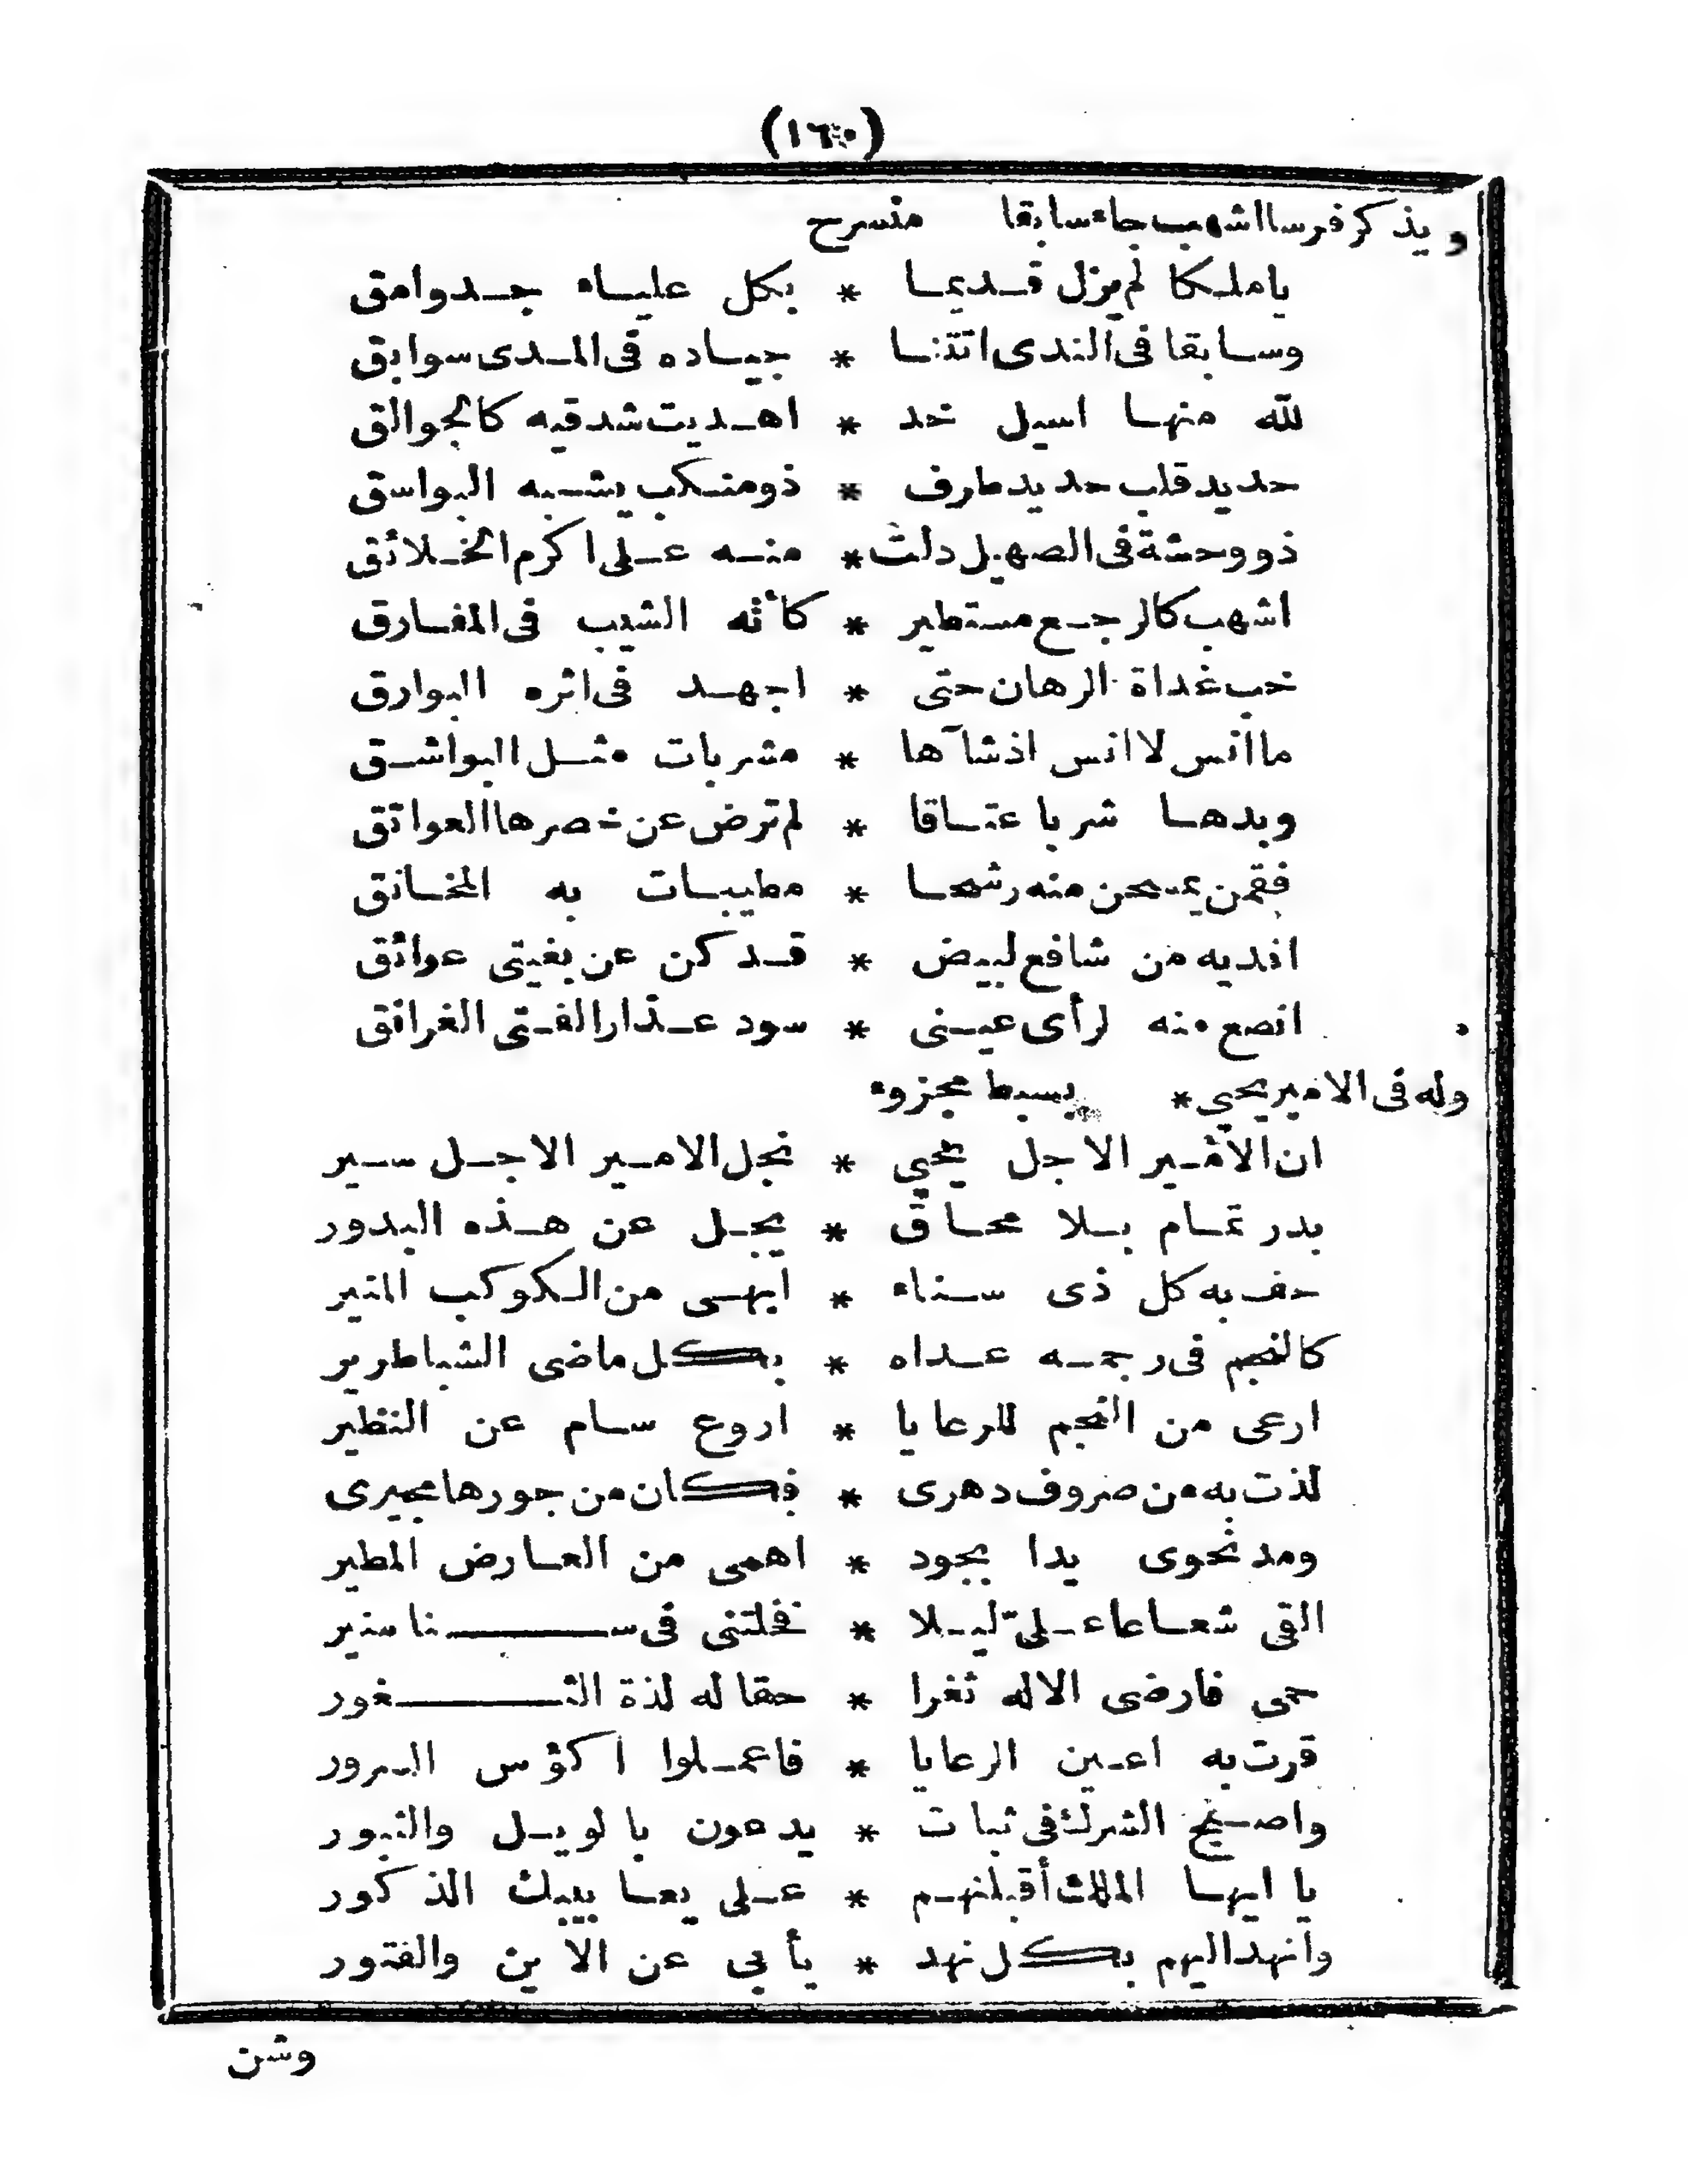 (١٦٠)
ويذكر فرسا اشهب جاء سابقا منسرح
يا ملكا لم يزل قديما * بكل علياء جد وامق
وسابقا فى الندى اتتنا * جياده فى المدى سوابق
لله منها اسيل خد * اهديت شدقيه كالجوالق
حديد قلب حديد طرف * ذو منكب يشبه البواسق
ذو وحشة فى الصهيل دلت * منه على اكرم الخلائق
اشهب كالرجع مستطير * كأنه الشيب فى المفارق
خب غداة الرهان حتى * اجهد فى اثره البوارق
ما انس لا انس اذ شآها * مشربات مثل البواشق
وبدها شربا عتاقا * لم ترض عن خصرها العواتق
فقمن يمسحن منه رشحا * مطيبات به المخانق
افديه من شافع لبيض * قد كن عن بغيتى عوائق
انصع منه لرأى عينى * سود عذار الفتى الغرانق
وله فى الامير يحيي * بسيط مجزوء
ان الامير الاجل يحيي * نجل الامير الاجل سير
بدر تمام بلا محاق * يجل عن هذه البدور
حف به كل ذى سناء * ابهى من الكوكب المنير
كالنجم فى رجمه عداه * بكل ماضى الشبا طرير
ارعى من النجم للرعايا * اروع سام عن النظير
لذت به من صروف دهرى * فكان من جورها مجيرى
ومد نحوى يدا بجود * اهمى من العارض المطير
القى شعاعا علىّ ليلا * فخلتنى فى سنا منير
حمى فارضى الاله ثغرا * حقا له لذة الثغور
قرت به اعين الرعايا * فاعملوا اكؤس السرور
واصبح الشرك فى ثبات * يدعون بالويل والثبور
يا ايها الملك أقبلنهم * على يعابيبك الذكور
وانهد اليهم بكل نهد * يأبى عن الاين والفتور
وشن